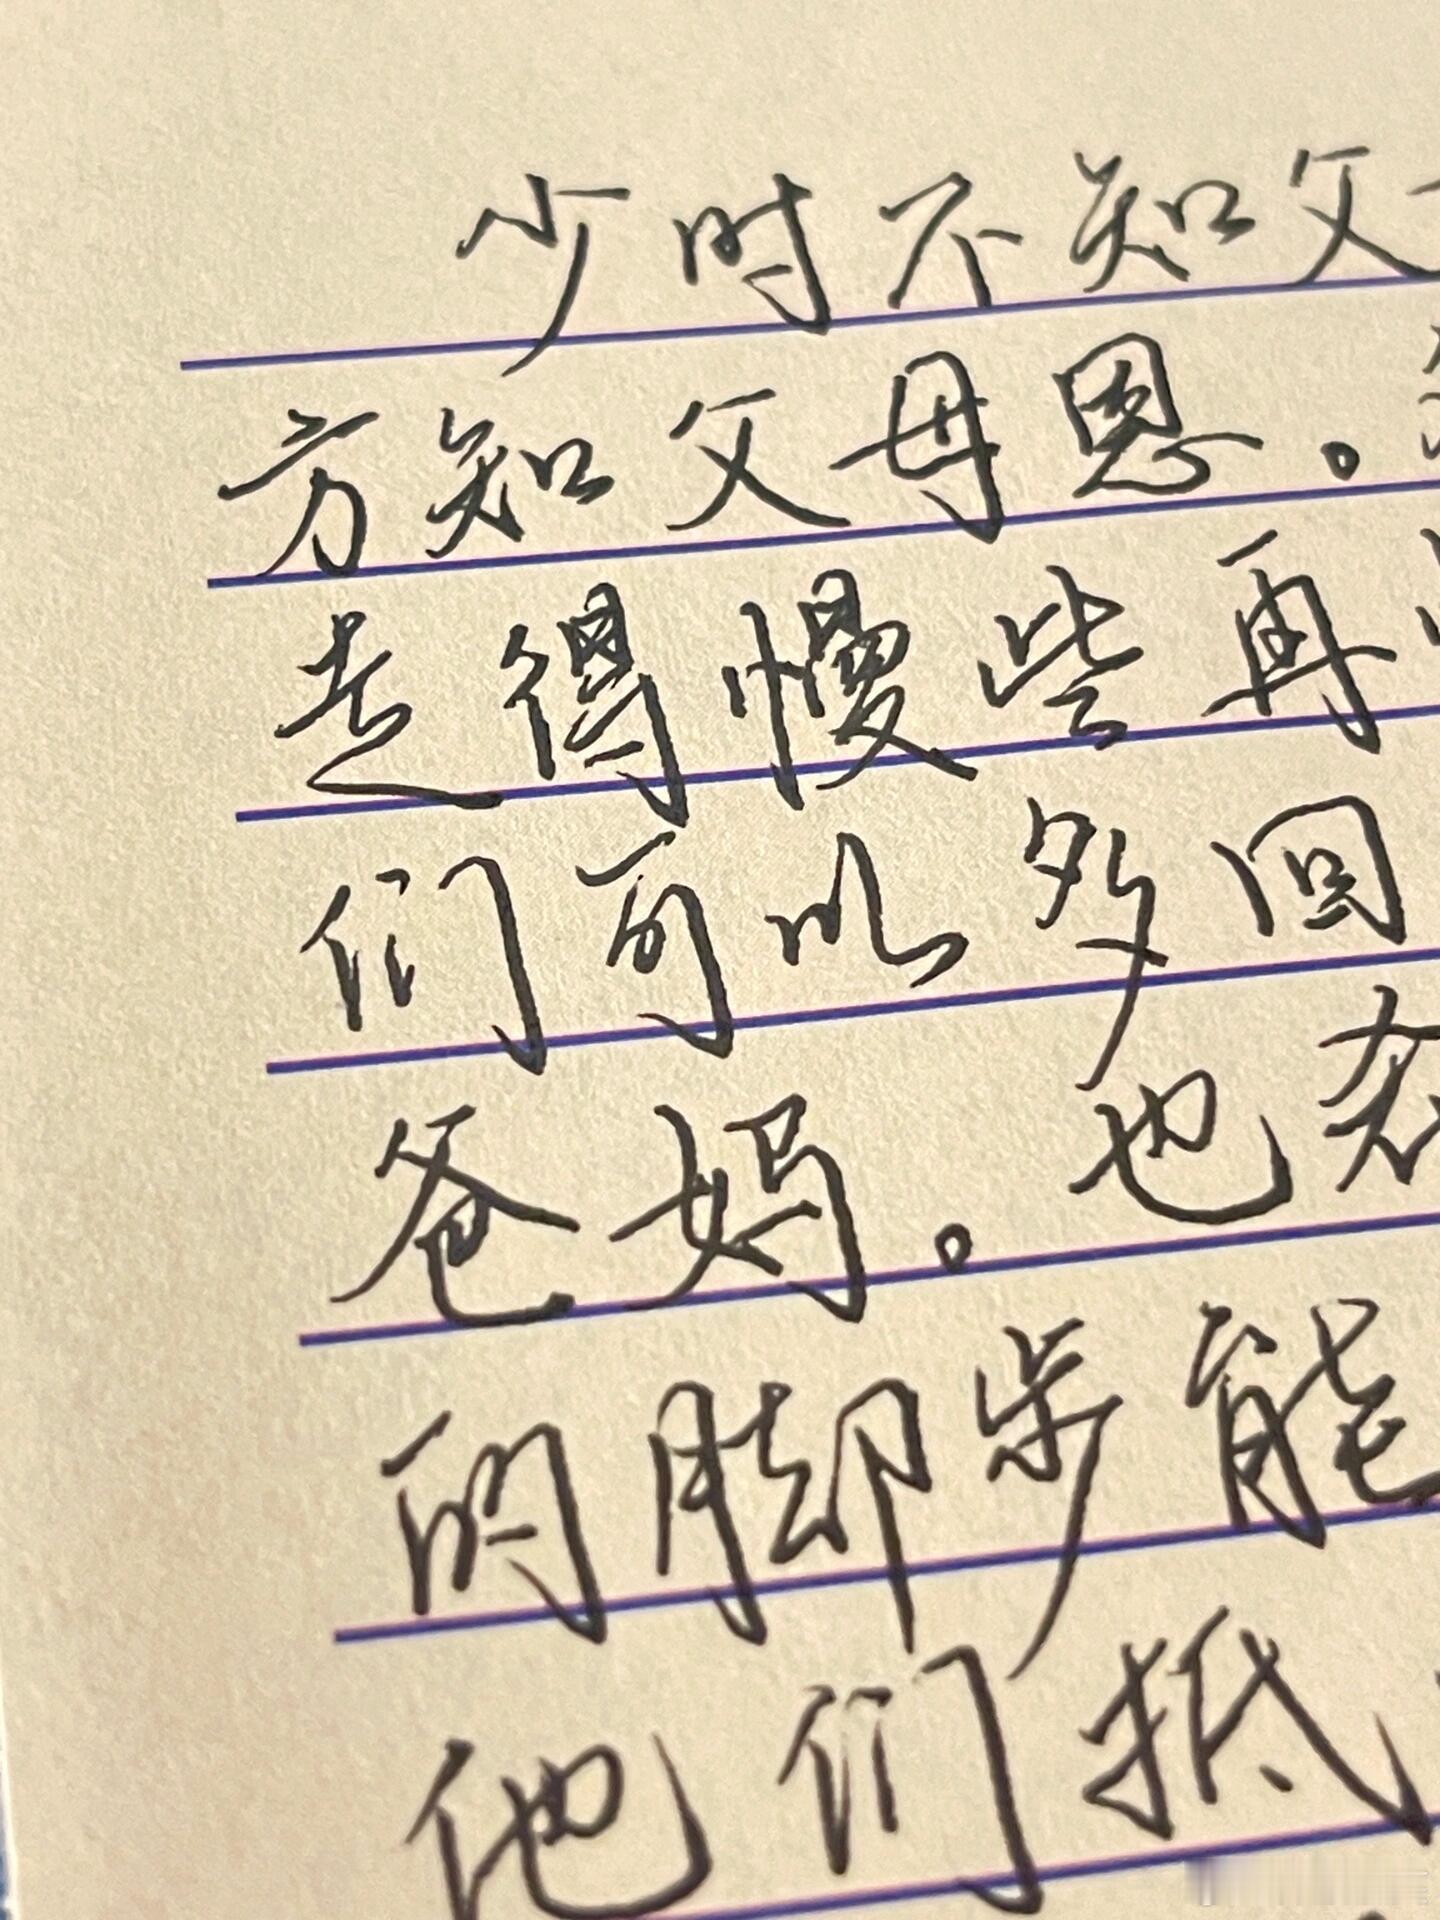 少时不知父
方知父母恩。
走得慢些再
们可以多回
爸妈。也
的脚步能
他们抵